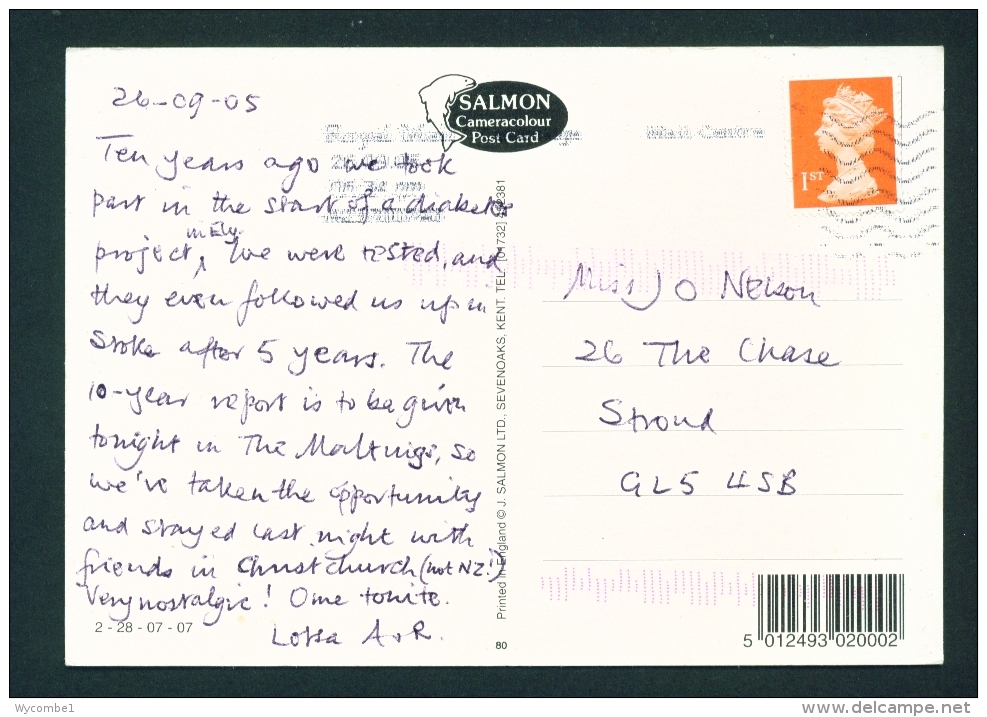 26-09-05
Ten years ago we took
part in the start of a diabetes
in Ely
project, we were tested, and
they even followed us up in
Stoke after 5 years. The
10-year report is to be given
tonight in The Maltings, so
we've taken the opportunity
and stayed last night with
friends in Christchurch (not NZ!)
Very nostalgic! Ome tonite.
Lotsa A+R.
2 - 28 - 07 - 07
SALMON
Cameracolour
Post Card
Printed in England © J. SALMON LTD., SEVENOAKS, KENT. TEL: (01732) 452381
80
1ST
Miss Jo Nelson
26 The Chase
Stroud
GL5 4SB
5 012493 020002
Wycombe1
www.delcampe.net